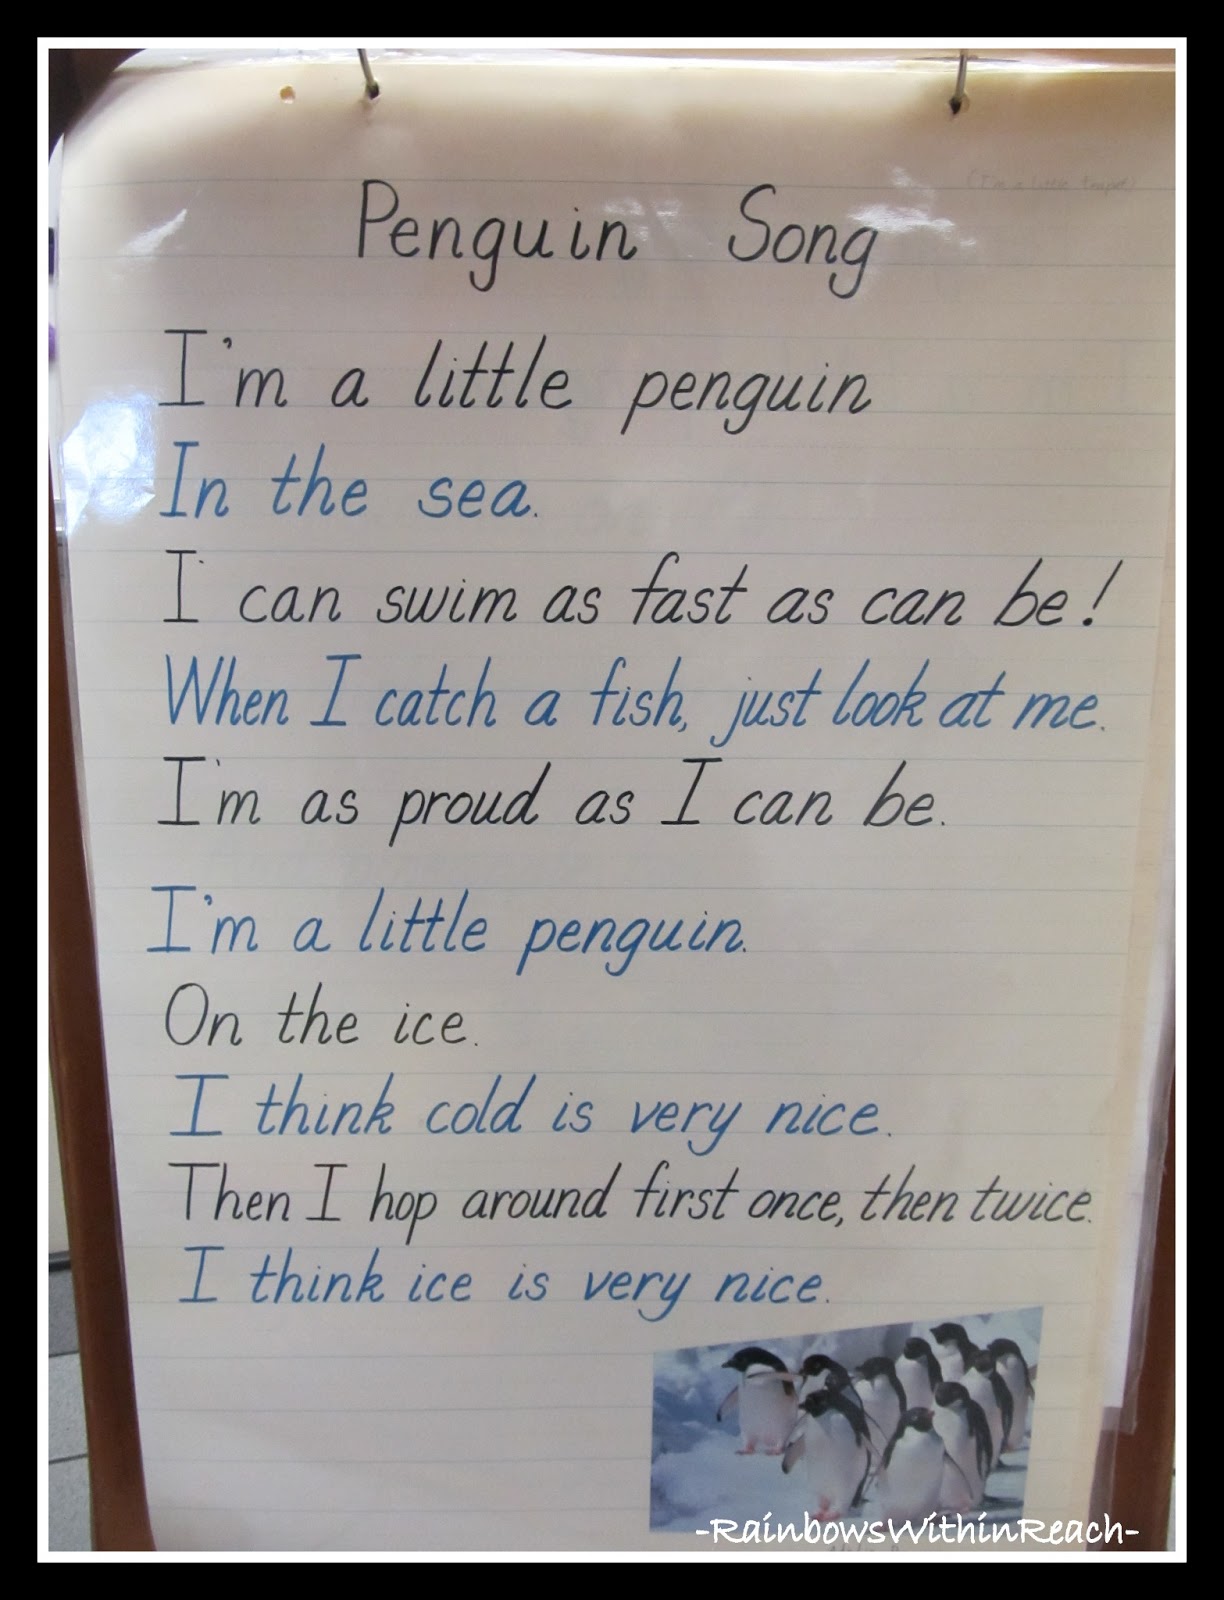 (I'm a little teapot)
Penguin Song
I'm a little penguin
In the sea.
I can swim as fast as can be!
When I catch a fish, just look at me.
I'm as proud as I can be.
I'm a little penguin.
On the ice.
I think cold is very nice.
Then I hop around first once, then twice.
I think ice is very nice.
-RainbowsWithinReach-